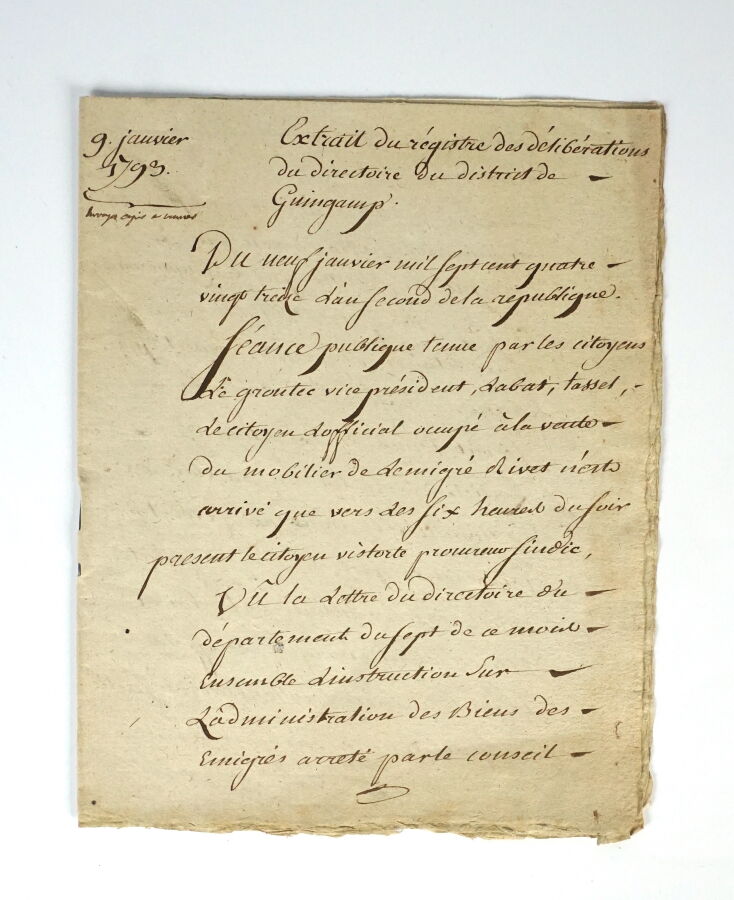 9. janvier
1793.
Extrait du régistre des délibérations
du directoire du district de –
Guingamp.
Du neuf janvier mil sept cent quatre –
vingt treize L'an second de la republique.
Séance publique tenue par les citoyens
Le grontec vice président, Labat, tassel, –
Le citoyen Lofficial ocupé à la vente –
du mobilier de Lemigré Rivet n'est
arrivé que vers les six heures du soir
present le citoyen vistorte procureur sindic,
Vû la Lettre du directoire du –
département du sept de ce mois –
Ensemble L'instruction Sur –
L'administration des Biens des –
Emigrés arreté par le conseil –